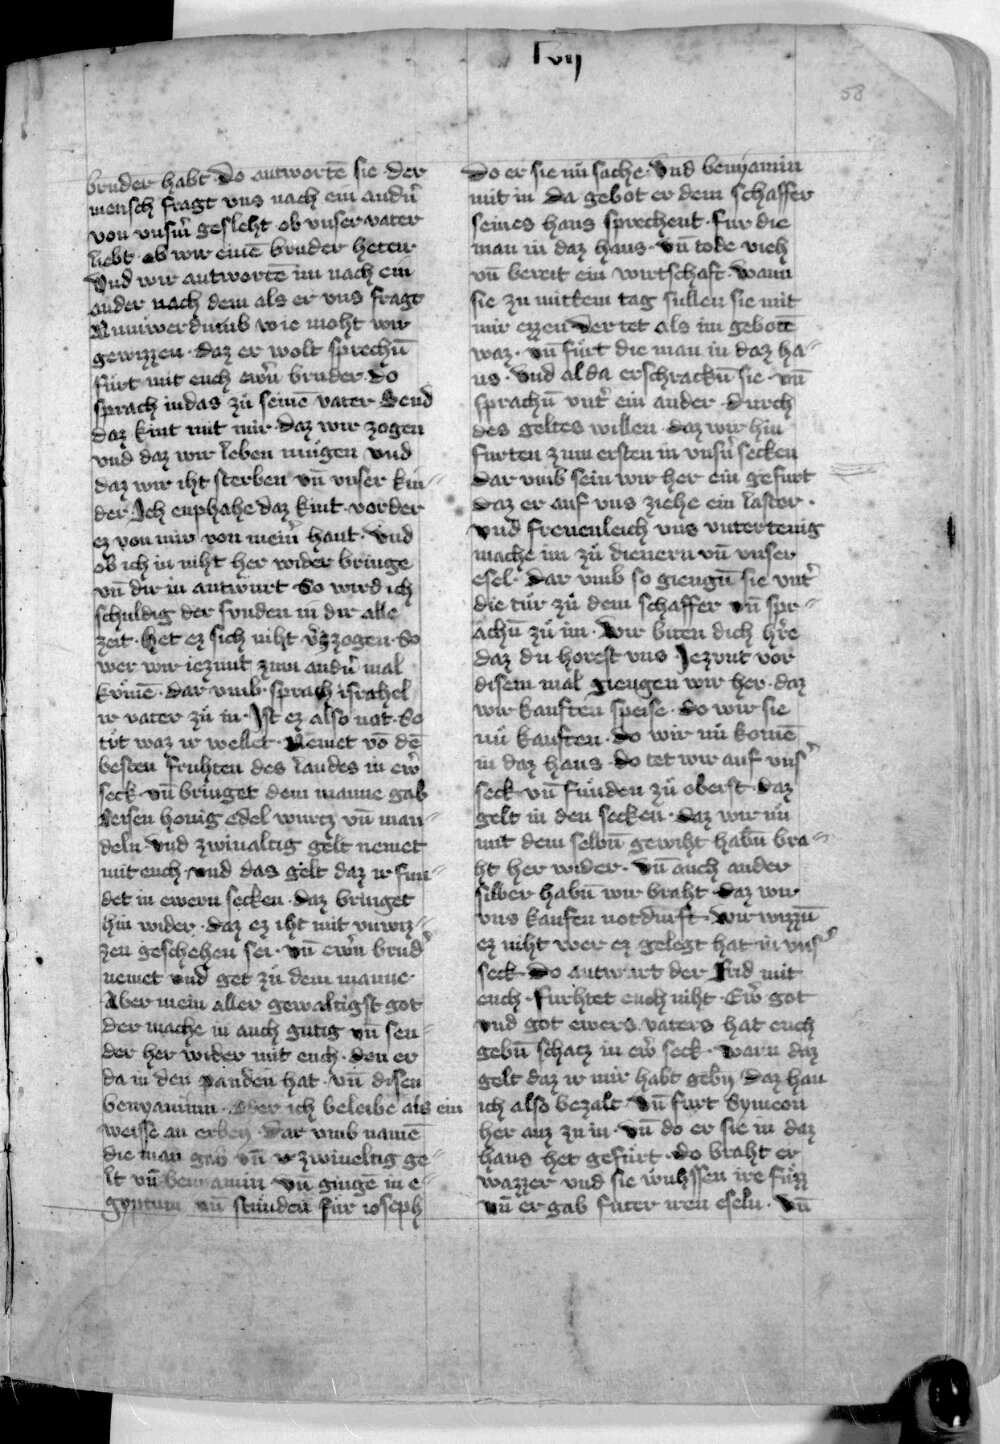 lvij
58
bruder habt · Do antwortē sie · der
mensch fragt vns nach ein andn̄
von vnsm̄ gesleht ob vnser vater
lebt · ob wir einē bruder heten ·
Vnd wir antwortē im nach ein
ander nach dem als er vns fragt
wie moht wir
gewizzen · daz er wolt sprechn̄
fürt mit euch ewn̄ bruder · Do
sprach iudas zů seinē vater Send
daz kint mit mir · daz wir zogen
vnd daz wir leben mügen vnd
daz wir iht sterben vn̄ vnser kin〃
der Ich enphahe daz kint · vorder
ez von mir von mein̄ hant · Vnd
ob ich in niht her wider bringe
vn̄ dir in antwürt So wird ich
schuldig der sunden in dir alle
zeit · Het ez sich niht v̄zzogen · So
wer wir iezunt zum andn̄ mal
kömē · dar vmb sprach israhel
ir vater zů in · Ist ez also not · So
tůt waz ir wellet · Nemet vō dē
besten fruhten des landes in ew̄
seck · vn̄ bringet dem manne gab
honig edel wurtz vn̄ man〃
deln Vnd zwiualtig gelt nemet
mit euch · vnd das gelt daz ir fun〃
det in ewern secken · daz bringet
hin wider · daz ez iht mit vnwiz〃
zen geschehen sei · vn̄ ewn̄ brud̄
nemet vnd get zů dem manne
Aber mein aller gewaltigst got
der mache in auch gutig vn̄ sen〃
der her wider mit euch · den er
da in den panden hat · vn̄ disen
benyaminn · Oder ich beleibe als ein
weisse an erben · Dar vmb namē
die man gab vn̄ zwiueltig ge〃
lt vn̄ beniamin vn̄ ginge in e〃
gyptum vn̄ stunden für ioseph
Do er sie nů sache · Vnd benyamin
mit in Da gebot er dem schaffer
seines haus sprechent · fur die
man in daz haus · vn̄ tode vieh
vn̄ bereit ein wirtschaft · Wann
sie zu mittem tag sullen sie mit
mir ezzen Der tet als im gebotē
waz · vn̄ fürt die man in daz ha〃
us · Vnd alda erschrackn̄ sie · vn̄
sprachn̄ vnt̄ ein ander · Durch
des geltes willen · daz wir hin
furten zum ersten in vnsn̄ secken
Dar vmb sein wir her ein gefurt
Daz er auf vns ziehe ein laster ·
Vnd freuenleich vns vntertenig
mache im zů dienern vn̄ vnser
esel · Dar vmb so giengn̄ sie vnt̄
die tür zů dem schaffer vn̄ spr〃
achn̄ zů im · Wir biten dich hr̄e
daz du horest vns Iezunt vor
disem mal giengen wir her · daz
wir kauften speise · do wir sie
nů kauften · Do wir nů komē
in daz haus · do tet wir auf vns̄
seck vn̄ fünden zů oberst · daz
gelt in den secken · daz wir nů
mit dem selbn̄ gewiht habn̄ bra〃
ht her wider · Vn̄ auch ander
silber habn̄ wir braht · daz wir
vns kaufen notdurft · Wir wizzn̄
ez niht wer ez gelegt hat in vns̄
seck · Do antwurt der Frid mit
euch · furhtet euch niht · Ew̄ got
vnd got ewers vaters hat euch
gebn̄ schatz in ew̄ seck · Wann daz
gelt daz ir mir habt gebn̄ daz han
ich also bezalt Vn̄ furt Symeon
her auz zu in · vn̄ do er sie in daz
haus het gefürt · do braht er
wazzer vnd sie wuhssen ire füzz
vn̄ er gab füter iren eseln · Vn̄